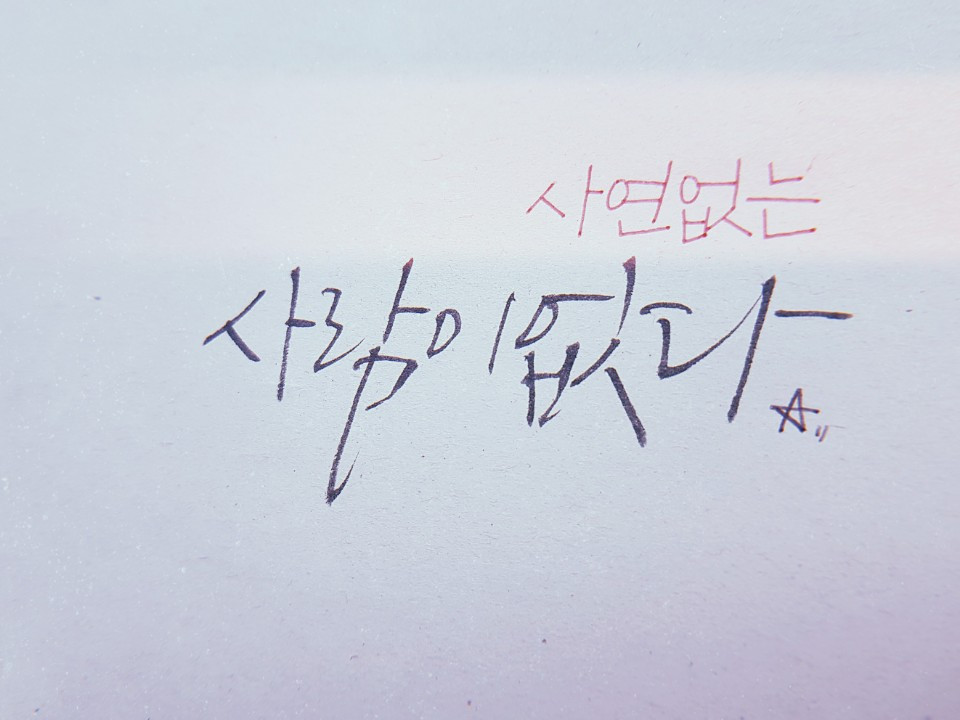 사연없는
사람이 없다